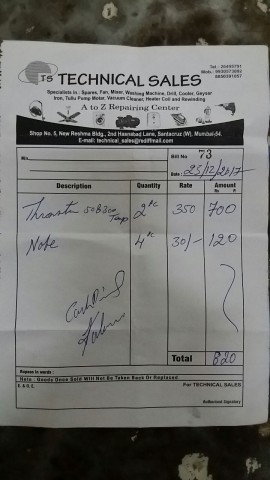 TS TECHNICAL SALES
Tel.: 26495791
Mob.: 9930573692
9898391657
Specialists in : Spares, Fan, Mixer, Washing Machine, Drill, Cooler, Geyser
Iron, Tullu Pump Motor, Vacuum Cleaner, Heater Coil and Rewinding
A to Z Repairing Center
Shop No. 5, New Reshma Bldg., 2nd Hasnabad Lane, Santacruz (W), Mumbai-54.
E-mail: technical_sales@rediffmail.com
M/s.
Bill No 73
Date : 25/12/2017
Description Quantity Rate Amount
2 Pc 350 700
4 Pc 30/- 120
Cash Paid
Total 820
Rupees in words :
Note : Goods Once Sold Will Not Be Taken Back Or Replaced.
E. & O. E.
For TECHNICAL SALES
Authorised Signatory